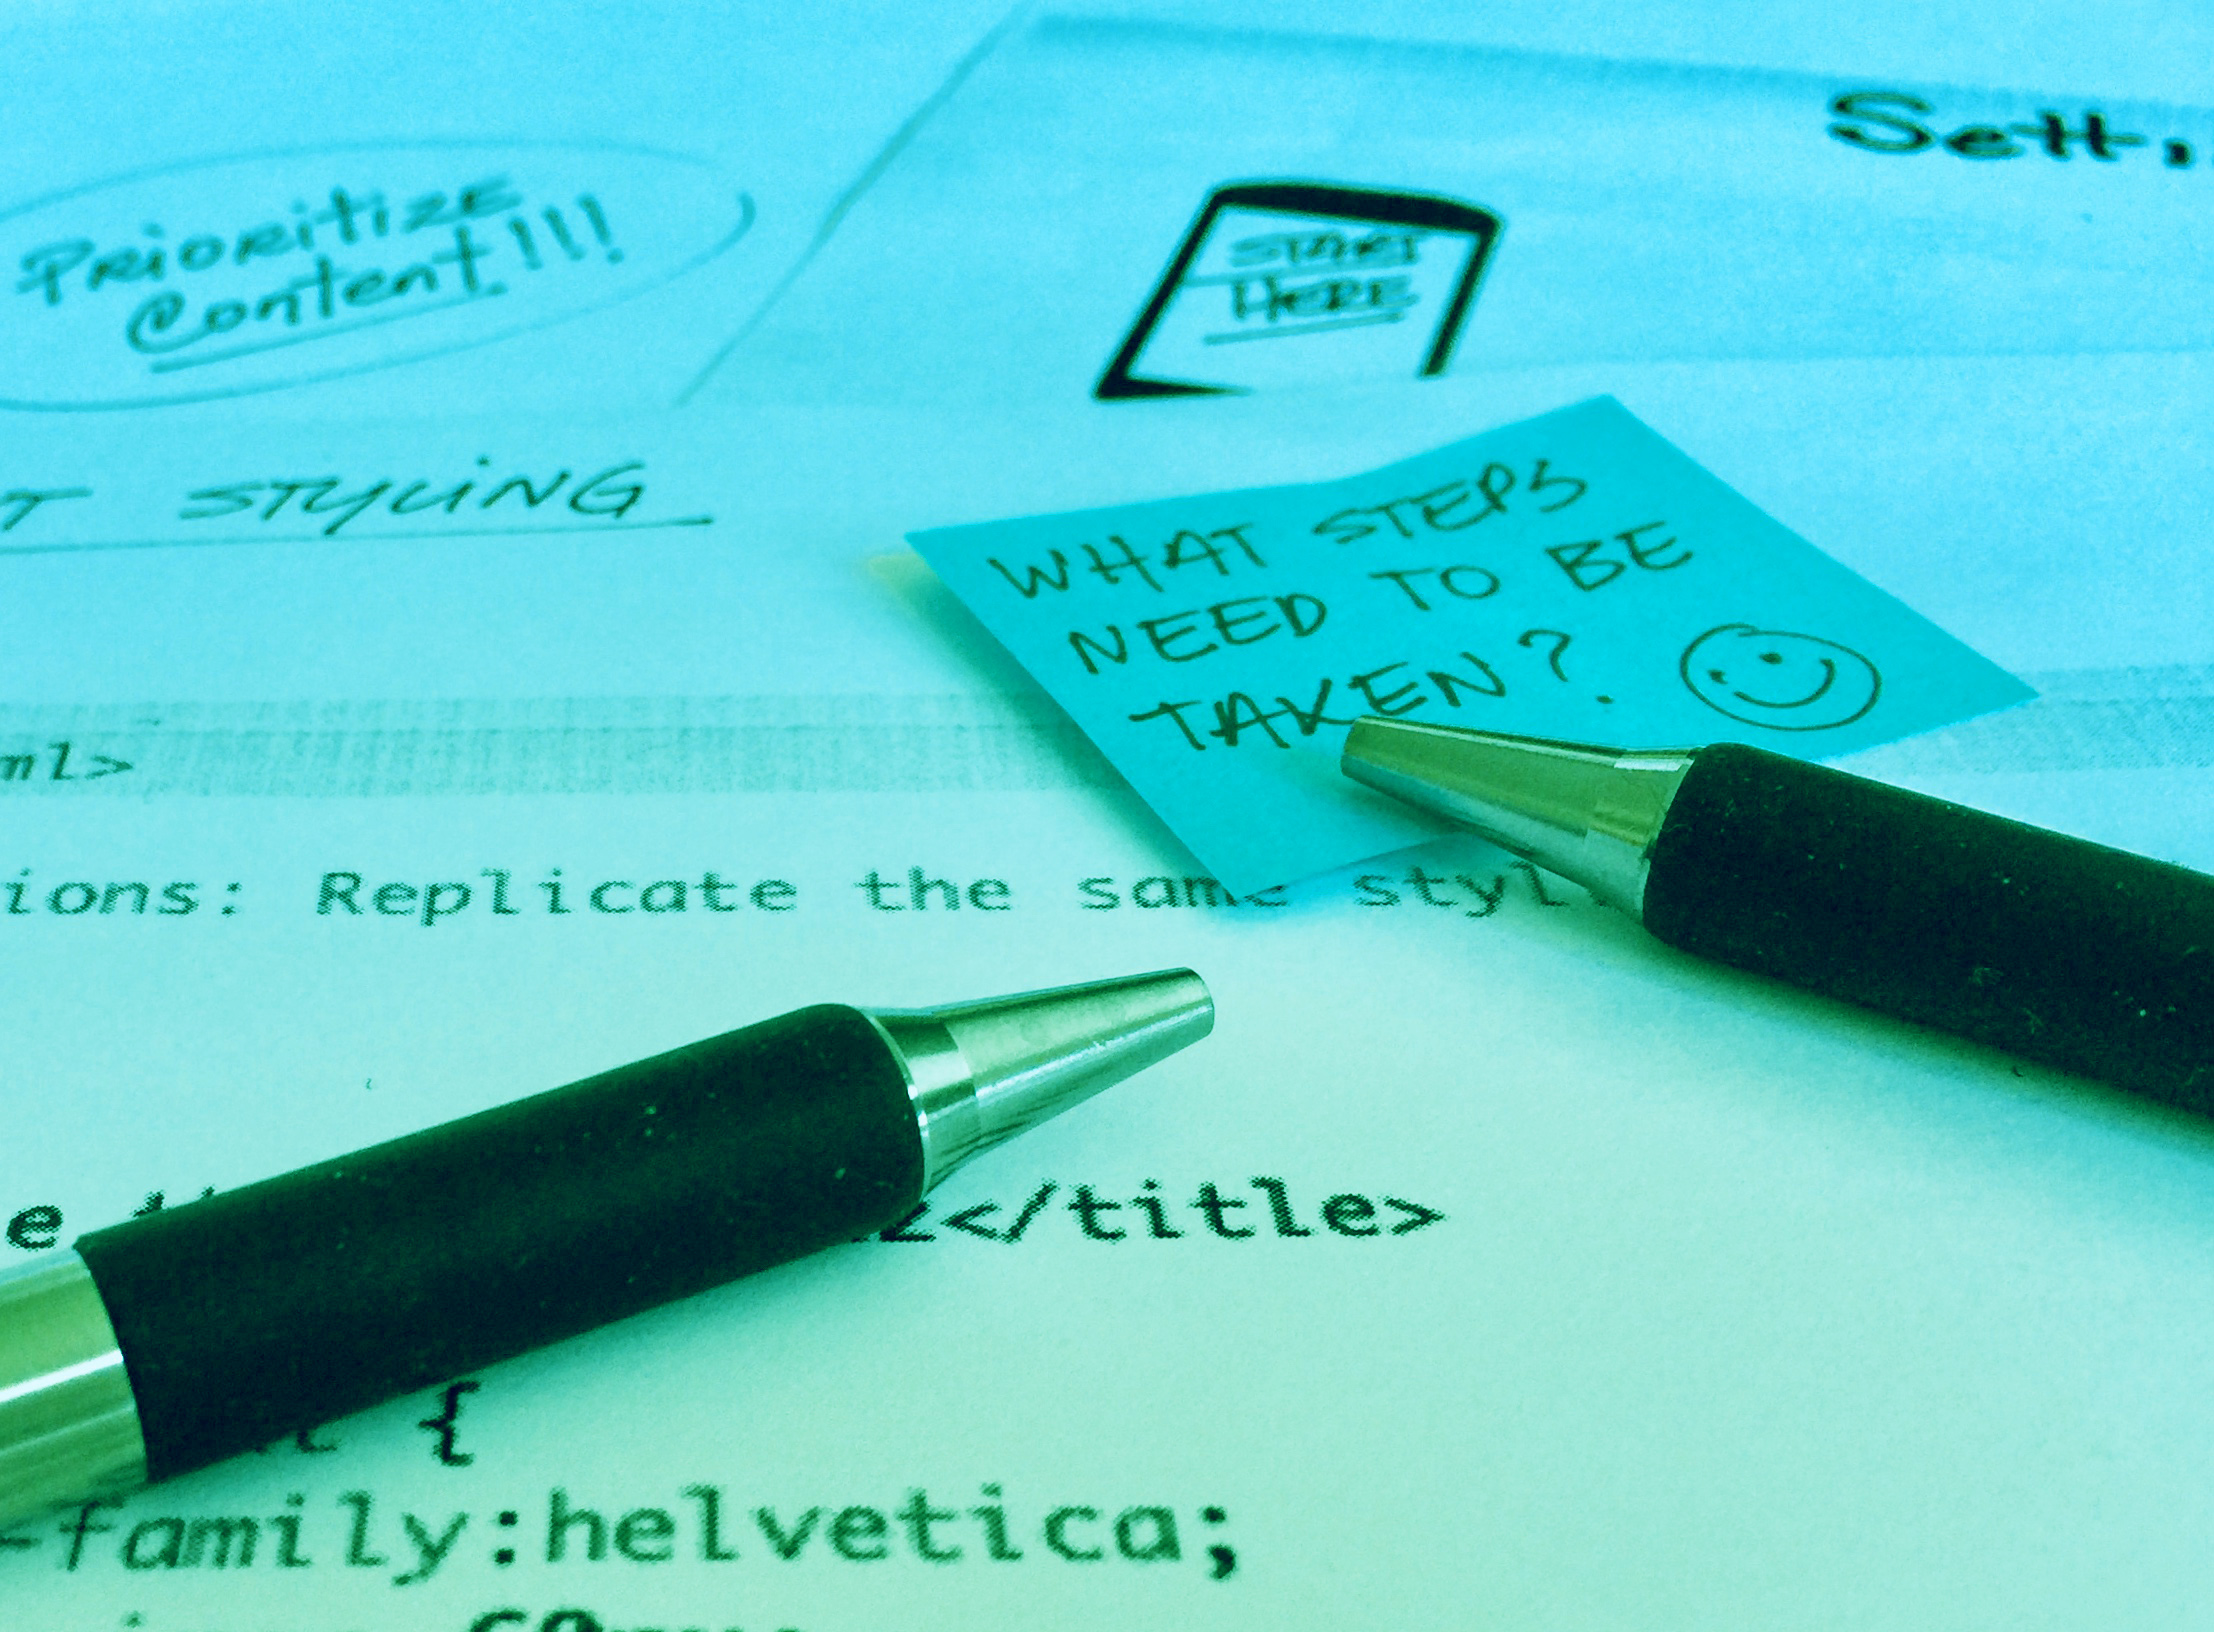 Prioritize
Content!!!
START
HERE
STYLING
WHAT STEPS
NEED TO BE
TAKEN?
ml>
ions: Replicate the same
e
</title>
{
-family:helvetica;